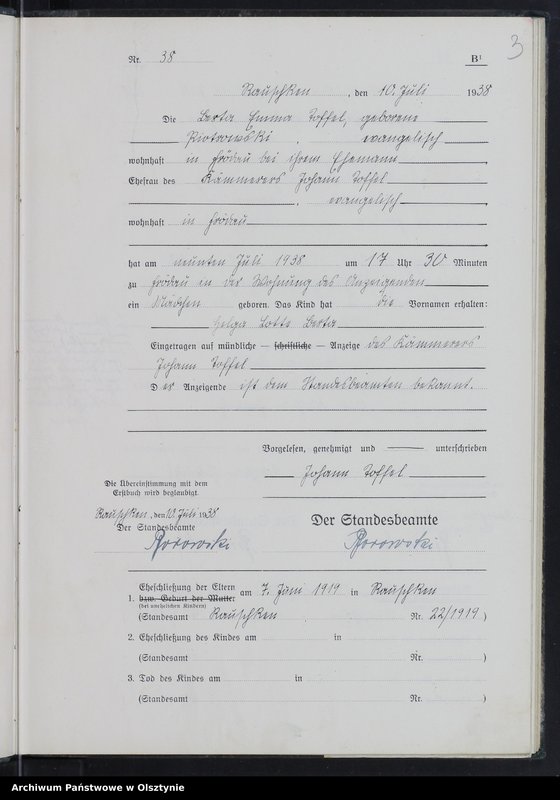 3
Nr. 38 B¹
Rauschken, den 10. Juli 1938
Die Berta Emma Toffel, geborene
Piotrowski, evangelisch
wohnhaft in Frödau bei ihrem Ehemann,
Ehefrau des Kämmerers Johann Toffel
, evangelisch,
wohnhaft in Frödau
hat am neunten Juli 1938 um 17 Uhr 30 Minuten
zu Frödau in der Wohnung des Anzeigenden
ein Mädchen geboren. Das Kind hat die Vornamen erhalten:
Helga Lotte Berta
Eingetragen auf mündliche – schriftliche – Anzeige des Kämmerers
Johann Toffel
Der Anzeigende ist dem Standesbeamten bekannt.
Vorgelesen, genehmigt und unterschrieben
Johann Toffel
Die Übereinstimmung mit dem
Erstbuch wird beglaubigt.
Rauschken, den 10. Juli 1938
Der Standesbeamte
Der Standesbeamte
1. Eheschließung der Eltern am 7. Juni 1919 in Rauschken
bzw. Geburt der Mutter
(bei unehelichen Kindern)
(Standesamt Rauschken Nr. 22/1919)
2. Eheschließung des Kindes am in
(Standesamt Nr. )
3. Tod des Kindes am in
(Standesamt Nr. )
Archiwum Państwowe w Olsztynie